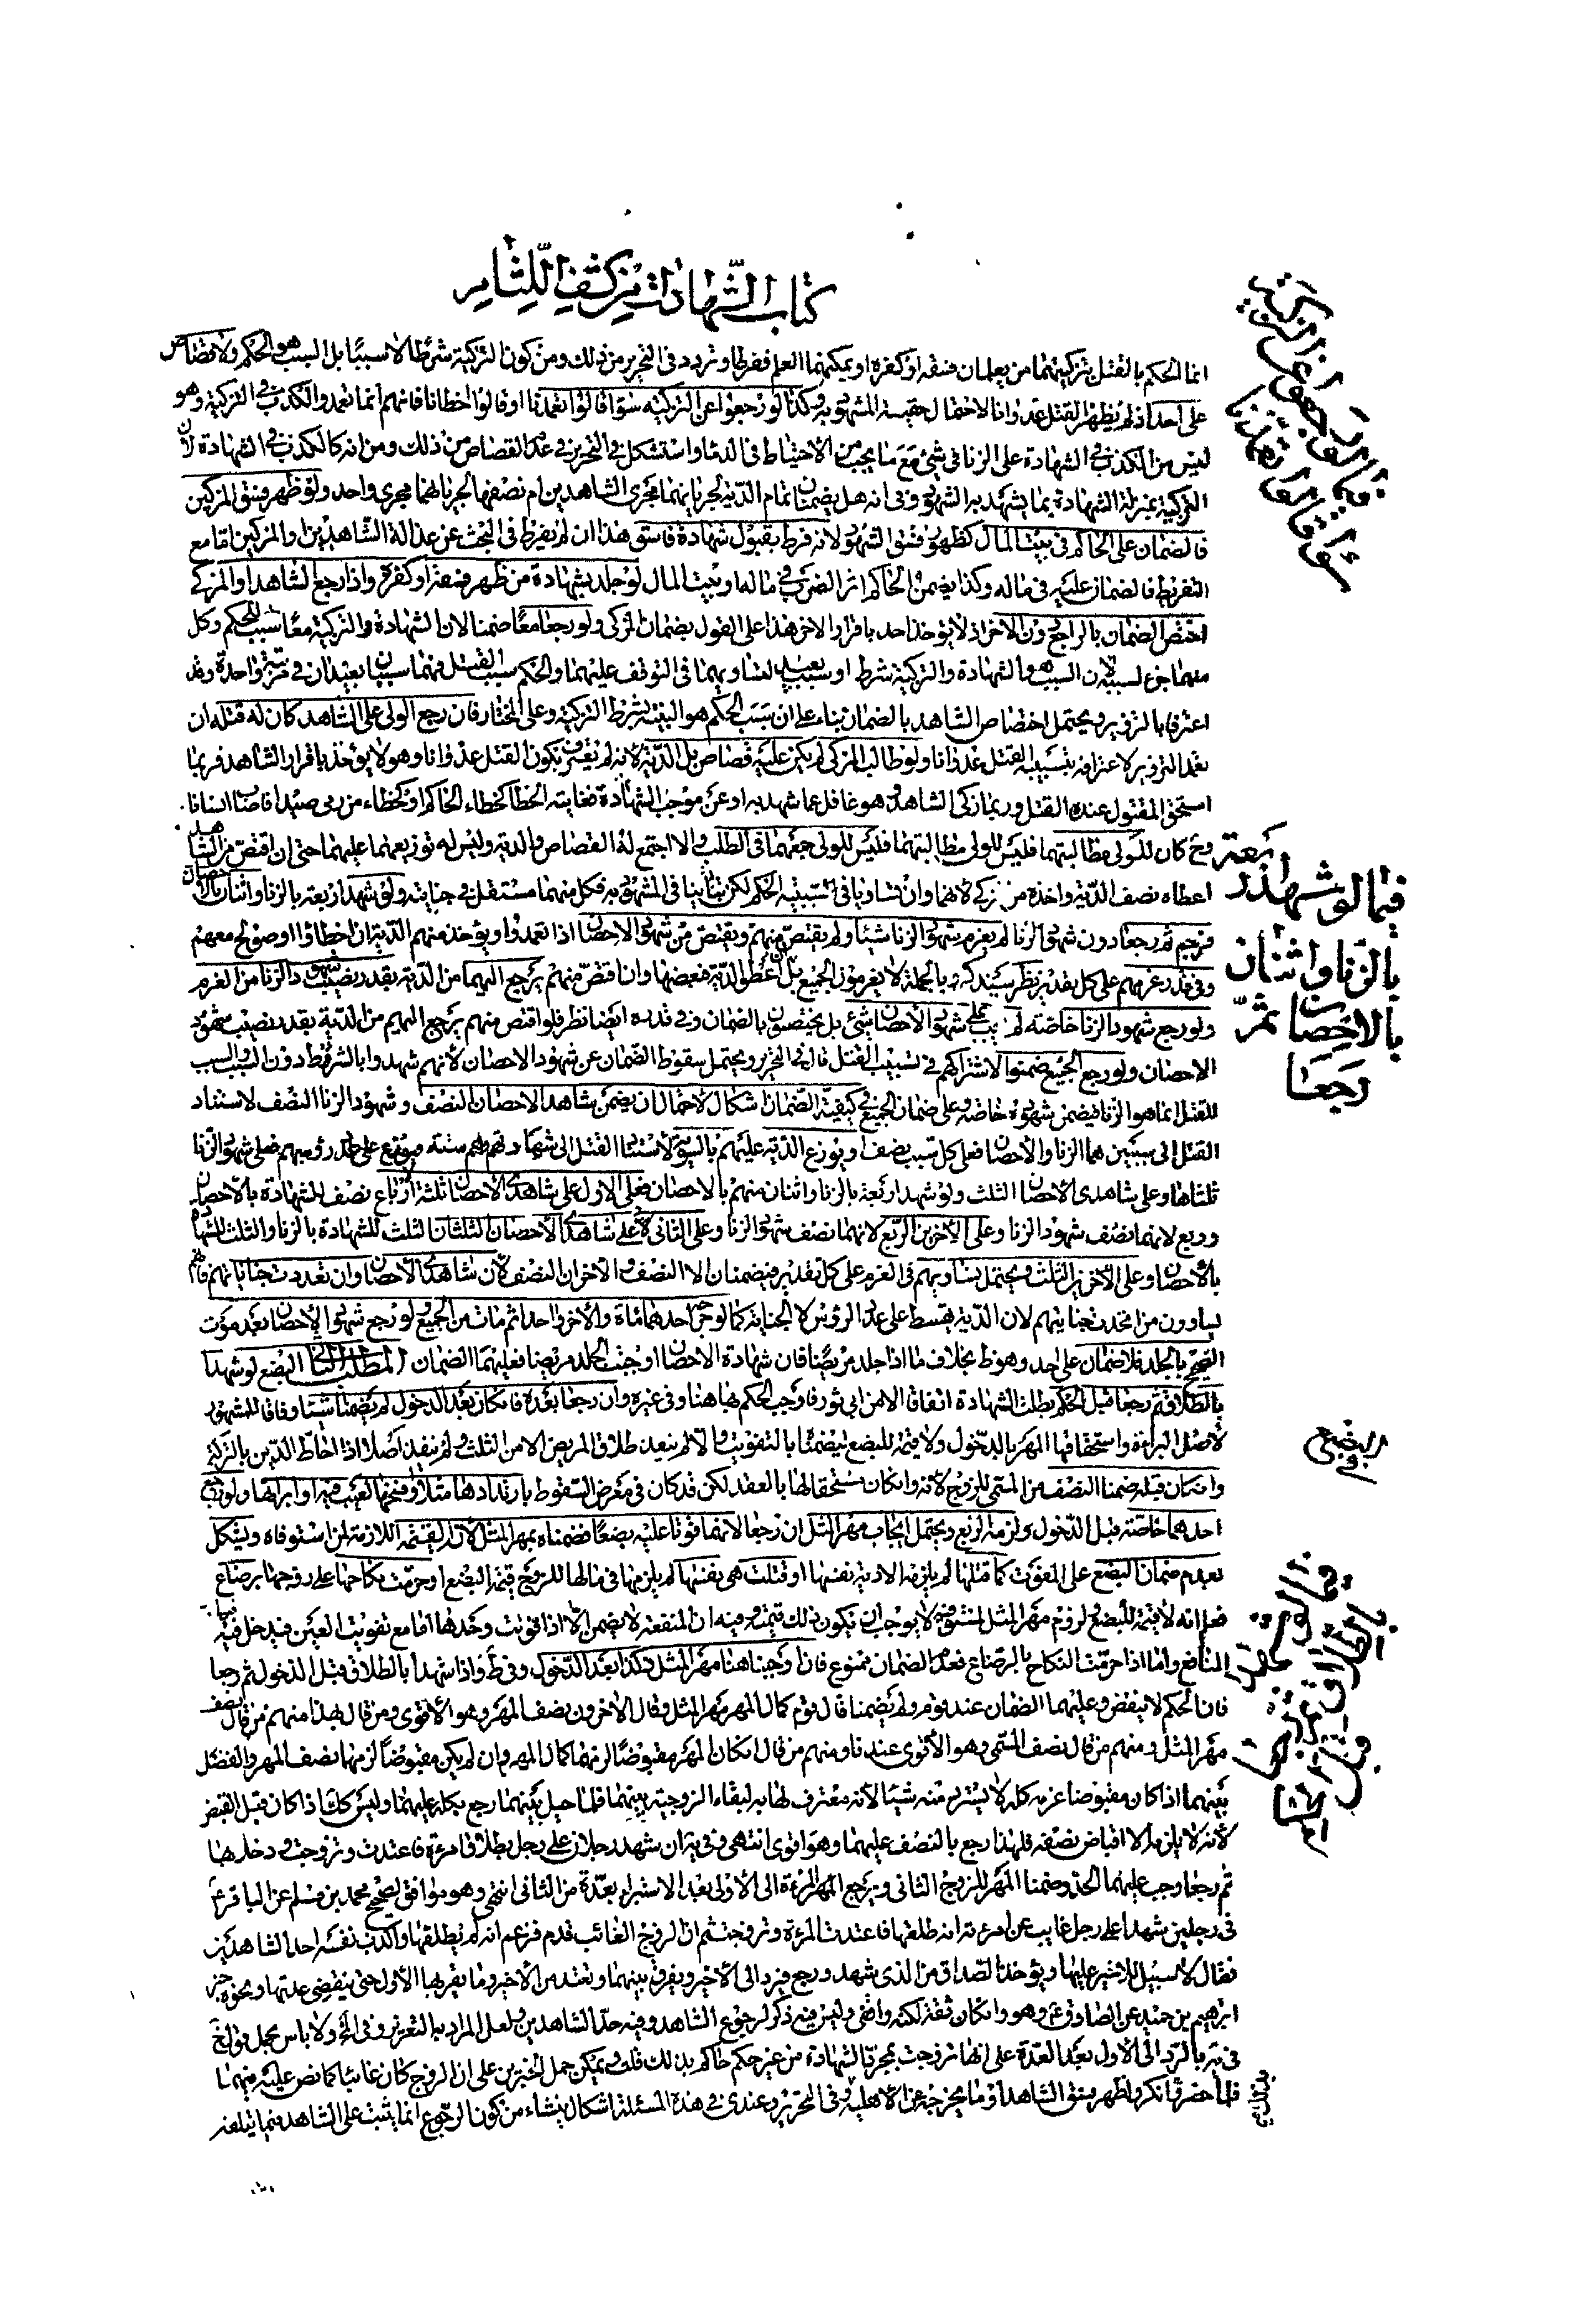 كتاب الشهادات من كشف اللثام
انما الحكم بالقتل بتزكيتهما من يعلمان فسقه او كفره او يمكنهما العلم ففرطا وتردد في التحرير من ذلك ومن كون التزكية شرطا لا سببا بل السبب هو الحكم ولا قصاص
على احد اذ لم يظهر القتل عدوانا لاحتمال حقيته المشهود به وكذا لو رجعوا عن التزكية سواء قالوا تعمدنا او قالوا اخطأنا فانهم انما تعمدوا الكذب في التزكية وهو
ليس من الكذب في الشهادة على الزنا في شئ مع ما يجب من الاحتياط في الدماء واستشكل في التحرير في عدم القصاص من ذلك ومن انه كالكذب في الشهادة لان
التزكية بمنزلة الشهادة بما يشهد به الشهود وفي انه هل يضمنان تمام الدية لجريانهما مجرى الشاهدين ام نصفها لجريانهما مجرى واحد ولو ظهر فسق المزكيين
فالضمان على الحاكم في بيت المال كظهور فسق الشهود لانه فرط بقبول شهادة فاسق هذا ان لم يفرط في البحث عن عدالة الشاهدين او المزكيين اما مع
التفريط فالضمان عليه في ماله وكذا يضمن الحاكم اثر الضرب في ماله او بيت المال لو جلد بشهادة من ظهر فسقه او كفره واذا رجع الشاهد او المزكى
اختص الضمان بالراجع دون الاخر اذ لا يؤخذ احد باقرار الاخر هذا على القول بضمان المزكى ولو رجعا معا ضمنا لان الشهادة والتزكية معا سبب للحكم وكل
منهما جزء لسببه لان السبب هو الشهادة والتزكية شرط او سبب بعيد لتساويهما في التوقف عليهما والحكم سبب القتل فهما سببان بعيدان في مرتبة واحدة وقد
اعترفا بالتزوير ويحتمل اختصاص الشاهد بالضمان بناء على ان سبب الحكم هو البينة بشرط التزكية وعلى المختار فان رجع الولي على الشاهد كان له قتله ان
تعمد التزوير لاعترافه بتسبيبه القتل عدوانا ولو طالب المزكى لم يكن عليه قصاص بل الدية لانه لم يعترف بكون القتل عدوانا وهو لا يؤخذ باقرار الشاهد فربما
استحق المقتول عنده القتل وربما زكى الشاهد وهو غافل عما شهد به او عن موجب الشهادة فغايته الخطأ كخطاء الحاكم او كخطاء من رمى صيدا فاصاب انسانا
وح كان للولي مطالبتهما فليس للولي جمعهما في الطلب والا اجتمع له القصاص والدية وليس له توزيعهما عليهما حتى ان اقتص من الشاهد
اعطاه نصف الدية واخذه من المزكى لانهما وان تساويا في سببية الحكم لكن تباينا في المشهود به فكل منهما مستقل في جنايته ولو شهد اربعة بالزنا واثنان بالاحصان
فرجم ثم رجعا دون شهود الزنا لم يغرم شهود الزنا شيئا ولم يقتص منهم ويقتص من شهود الاحصان اذا تعمدوا ويؤخذ منهم الدية ان اخطأوا او صولح معهم
وفي قدر غرمهم على كل تقدير نظر سيذكره وبالجملة لا يغرمون الجميع بل ان اعطوا الدية فبعضها وان اقتص منهم يرجع اليهم من الدية بقدر نصيب شهود الزنا من الغرم
ولو رجع شهود الزنا خاصة لم يجب على شهود الاحصان شئ بل يختصون بالضمان وفي قدره ايضا نظر فلو اقتص منهم يرجع اليهم من الدية بقدر نصيب شهود
الاحصان ولو رجع الجميع ضمنوا لاشتراكهم في تسبيب القتل قال في التحرير ويحتمل سقوط الضمان عن شهود الاحصان لانهم شهدوا بالشرط دون السبب والسبب
للقتل انما هو الزنا فيضمن شهوده خاصة وعلى ضمان الجميع في كيفية الضمان اشكال لاحتمال ان يضمن شاهدا الاحصان النصف وشهود الزنا النصف لاستناد
القتل الى سببين هما الزنا والاحصان فعلى كل سبب نصف او يوزع الدية عليهم بالسوية لاستناد القتل الى شهادتهم وهم ستة فيوزع على عدد رؤسهم فعلى شهود الزنا
ثلثاها وعلى شاهدي الاحصان الثلث ولو شهد اربعة بالزنا واثنان منهم بالاحصان فعلى الاول على شاهدي الاحصان ثلثة ارباع نصف للشهادة بالاحصان
وربع لانهما نصف شهود الزنا وعلى الاخرين الربع لانهما نصف شهود الزنا وعلى الثاني على شاهدي الاحصان الثلثان لثلث للشهادة بالزنا والثلث للشهادة
بالاحصان وعلى الاخرين الثلث ويحتمل تساويهم في الغرم على كل تقدير فيضمنان الا النصف والاخران النصف لان شاهدي الاحصان وان تعددت جناياتهم فانهم
يساوون من اتحدت جنايتهم لان الدية يقسط على عدد الرؤس لا الجناية كما لو جرح احدهما مائة والاخر واحدا ثم مات من الجميع ولو رجع شهود الاحصان بعد موت
الصحيح بالجلد فلا ضمان على احد وهو ظ بخلاف ما اذا جلد مريضا فان شهادة الاحصان اوجبت الجلد مريضا فعليهما الضمان المطلب الثاني البضع لو شهدا
بالطلاق ثم رجعا قبل الحكم بطلت الشهادة اتفاقا الا من ابي ثور فاوجب الحكم بها هنا وفي غيره وان رجعا بعده فان كان بعد الدخول لم يضمنا شيئا وفاقا للمشهور
لاصل البراءة واستحقاقها المهر بالدخول ولا قيمة للبضع ليضمنا بالتفويت والا لم ينفذ طلاق المريض الا من الثلث ولم ينفذ اصلا اذا احاط الدين بالتركة
وان كان قبله ضمنا النصف من المسمى للزوج لانه وان كان مستحقا لها بالعقد لكن قد كان في معرض السقوط بارتدادها مثلا او فسخها لعيب فيه او ابرائها ولو رجع
احدهما خاصة قبل الدخول ولزمه الربع ويحتمل ايجاب مهر المثل ان رجعا لانهما فوتا عليه بضعا فضمناه بمهر المثل لانه القيمة اللازمة لمن استوفاه ويشكل
بعدم ضمان البضع على المفوت كما قتلها لم يلزمه الا دية نفسها او قتلت هي نفسها لم يلزمها في مالها للزوج قيمة البضع او حرمت نكاحها على زوجها برضاع
فعلم انه لا قيمة للبضع ولزوم مهر المثل لمستوفيه لا يوجب ان يكون ذلك قيمته وفيه ان المنفعة لا يضمن الا اذا فوتت وحدها اما مع تفويت العين فيدخل فيه
المنافع واما اذا حرمت النكاح بالرضاع فعدم الضمان ممنوع فان اوجبنا هنا مهر المثل فكذا بعد الدخول وفي ط واذا شهدا بالطلاق قبل الدخول ثم رجعا
فان الحكم لا ينقض وعليهما الضمان عند قوم ولم يضمنا قال قوم كمال المهر مهر المثل وقال الاخرون نصف المهر وهو الاقوى ومن قال بهذا منهم من قال نصف
مهر المثل ومنهم من قال نصف المسمى وهو الاقوى عندنا ومنهم من قال ان كان المهر مقبوضا لزمهما كمال المهر وان لم يكن مقبوضا لزمهما نصف المهر والفصل
بينهما اذا كان مقبوضا غرمه كله لا يسترد منه شيئا لانه معترف لها به لبقاء الزوجية بينهما فلما حيل بينهما رجع بكله عليهما وليس كك اذا كان قبل القبض
لانه لا يلزمه الا اقباض نصفه فلهذا رجع بالنصف عليهما وهو اقوى انتهى وفي يه ان شهد رجلان على رجل بطلاق امرءة فاعتدت وتزوجت ودخل بها
ثم رجعا وجب عليهما الحد وضمنا المهر للزوج الثاني ويرجع المرءة الى الاول بعد الاستبراء بعدة من الثاني انتهى وهو موافق لصحيح محمد بن مسلم عن الباقر ع
في رجلين شهدا على رجل غايب عن امرءته انه طلقها فاعتدت المرءة وتزوجت ثم ان الزوج الغائب قدم فزعم انه لم يطلقها واكذب نفسه احد الشاهدين
فقال لا سبيل للاخير عليها ويؤخذ الصداق من الذي شهد ورجع فيرد الى الاخير ويفرق بينهما وتعتد من الاخير وما يقربها الاول حتى ينقضي عدتها ونحوه خبر
ابرهيم بن عبد الحميد عن الصادق ع وهو وان كان ثقة لكنه واقفي وليس فيه ذكر لرجوع الشاهد وفيه حد الشاهدين ولعل المراد به التعزير وفي لف ولا باس بحمل قول الشيخ
في يه بالرد الى الاول بعد العدة على انها تزوجت بمجرد الشهادة من غير حكم حاكم بذلك قلت ويمكن حمل الخبرين على ان الزوج كان غائبا كما نص عليه فيهما
فلما حضر وانكر ولظهر فسق الشاهد او ما يخرجه عن الاهلية وفي التحرير وعندي في هذه المسئلة اشكال ينشاء من كون الرجوع انما يثبت على الشاهد فيما يتلفه
فيما لو رجعوا عن التزكية
سواء قالوا تعمدنا
فيما لو شهد اربعة
بالزنا واثنان
بالاحصان ثم
رجعا
في البضع